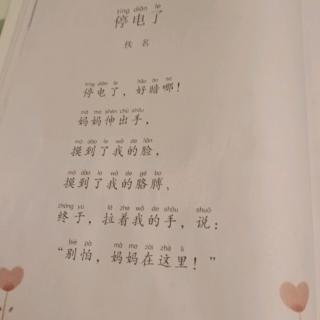 tíng diàn le
停电了
佚名
tíng diàn le hǎo àn na
停电了，好暗哪！
mā ma shēn chū shǒu
妈妈伸出手，
mō dào le wǒ de liǎn
摸到了我的脸，
mō dào le wǒ de gē bo
摸到了我的胳膊，
zhōng yú lā zhe wǒ de shǒu shuō
终于，拉着我的手，说：
bié pà mā ma zài zhè lǐ
“别怕，妈妈在这里！”